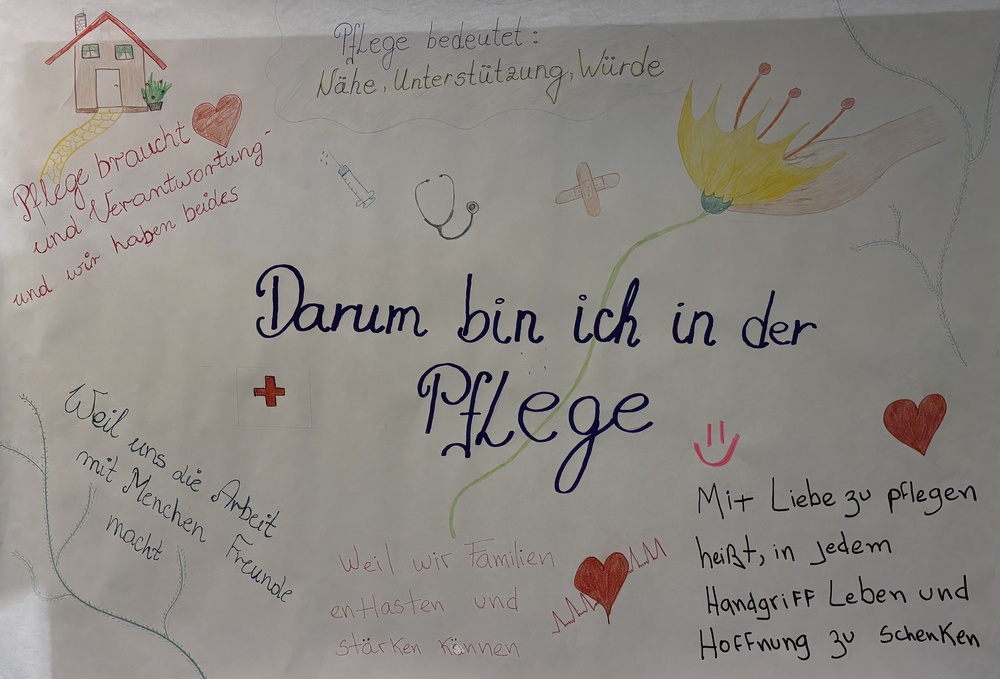 Pflege bedeutet:
Nähe, Unterstützung, Würde
Pflege braucht
und Verantwortung
und wir haben beides
Darum bin ich in der
Pflege
Weil uns die Arbeit
mit Menchen Freunde
macht
Weil wir Familien
entlasten und
stärken können
Mit Liebe zu pflegen
heißt, in jedem
Handgriff Leben und
Hoffnung zu schenken